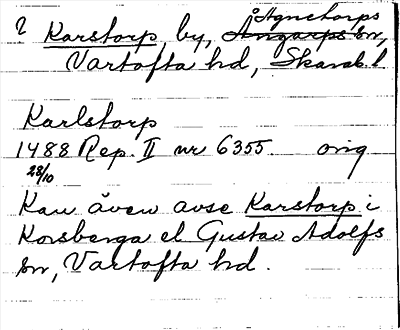 ? Karstorp, by, Ågnetorps sn,
Vartofta hd, Skarab. l.
Karlstorp
1488 Rep. II nr 6355. orig
28/10
Kan även avse Karstorp i
Korsberga el Gustav Adolfs
sn, Vartofta hd.